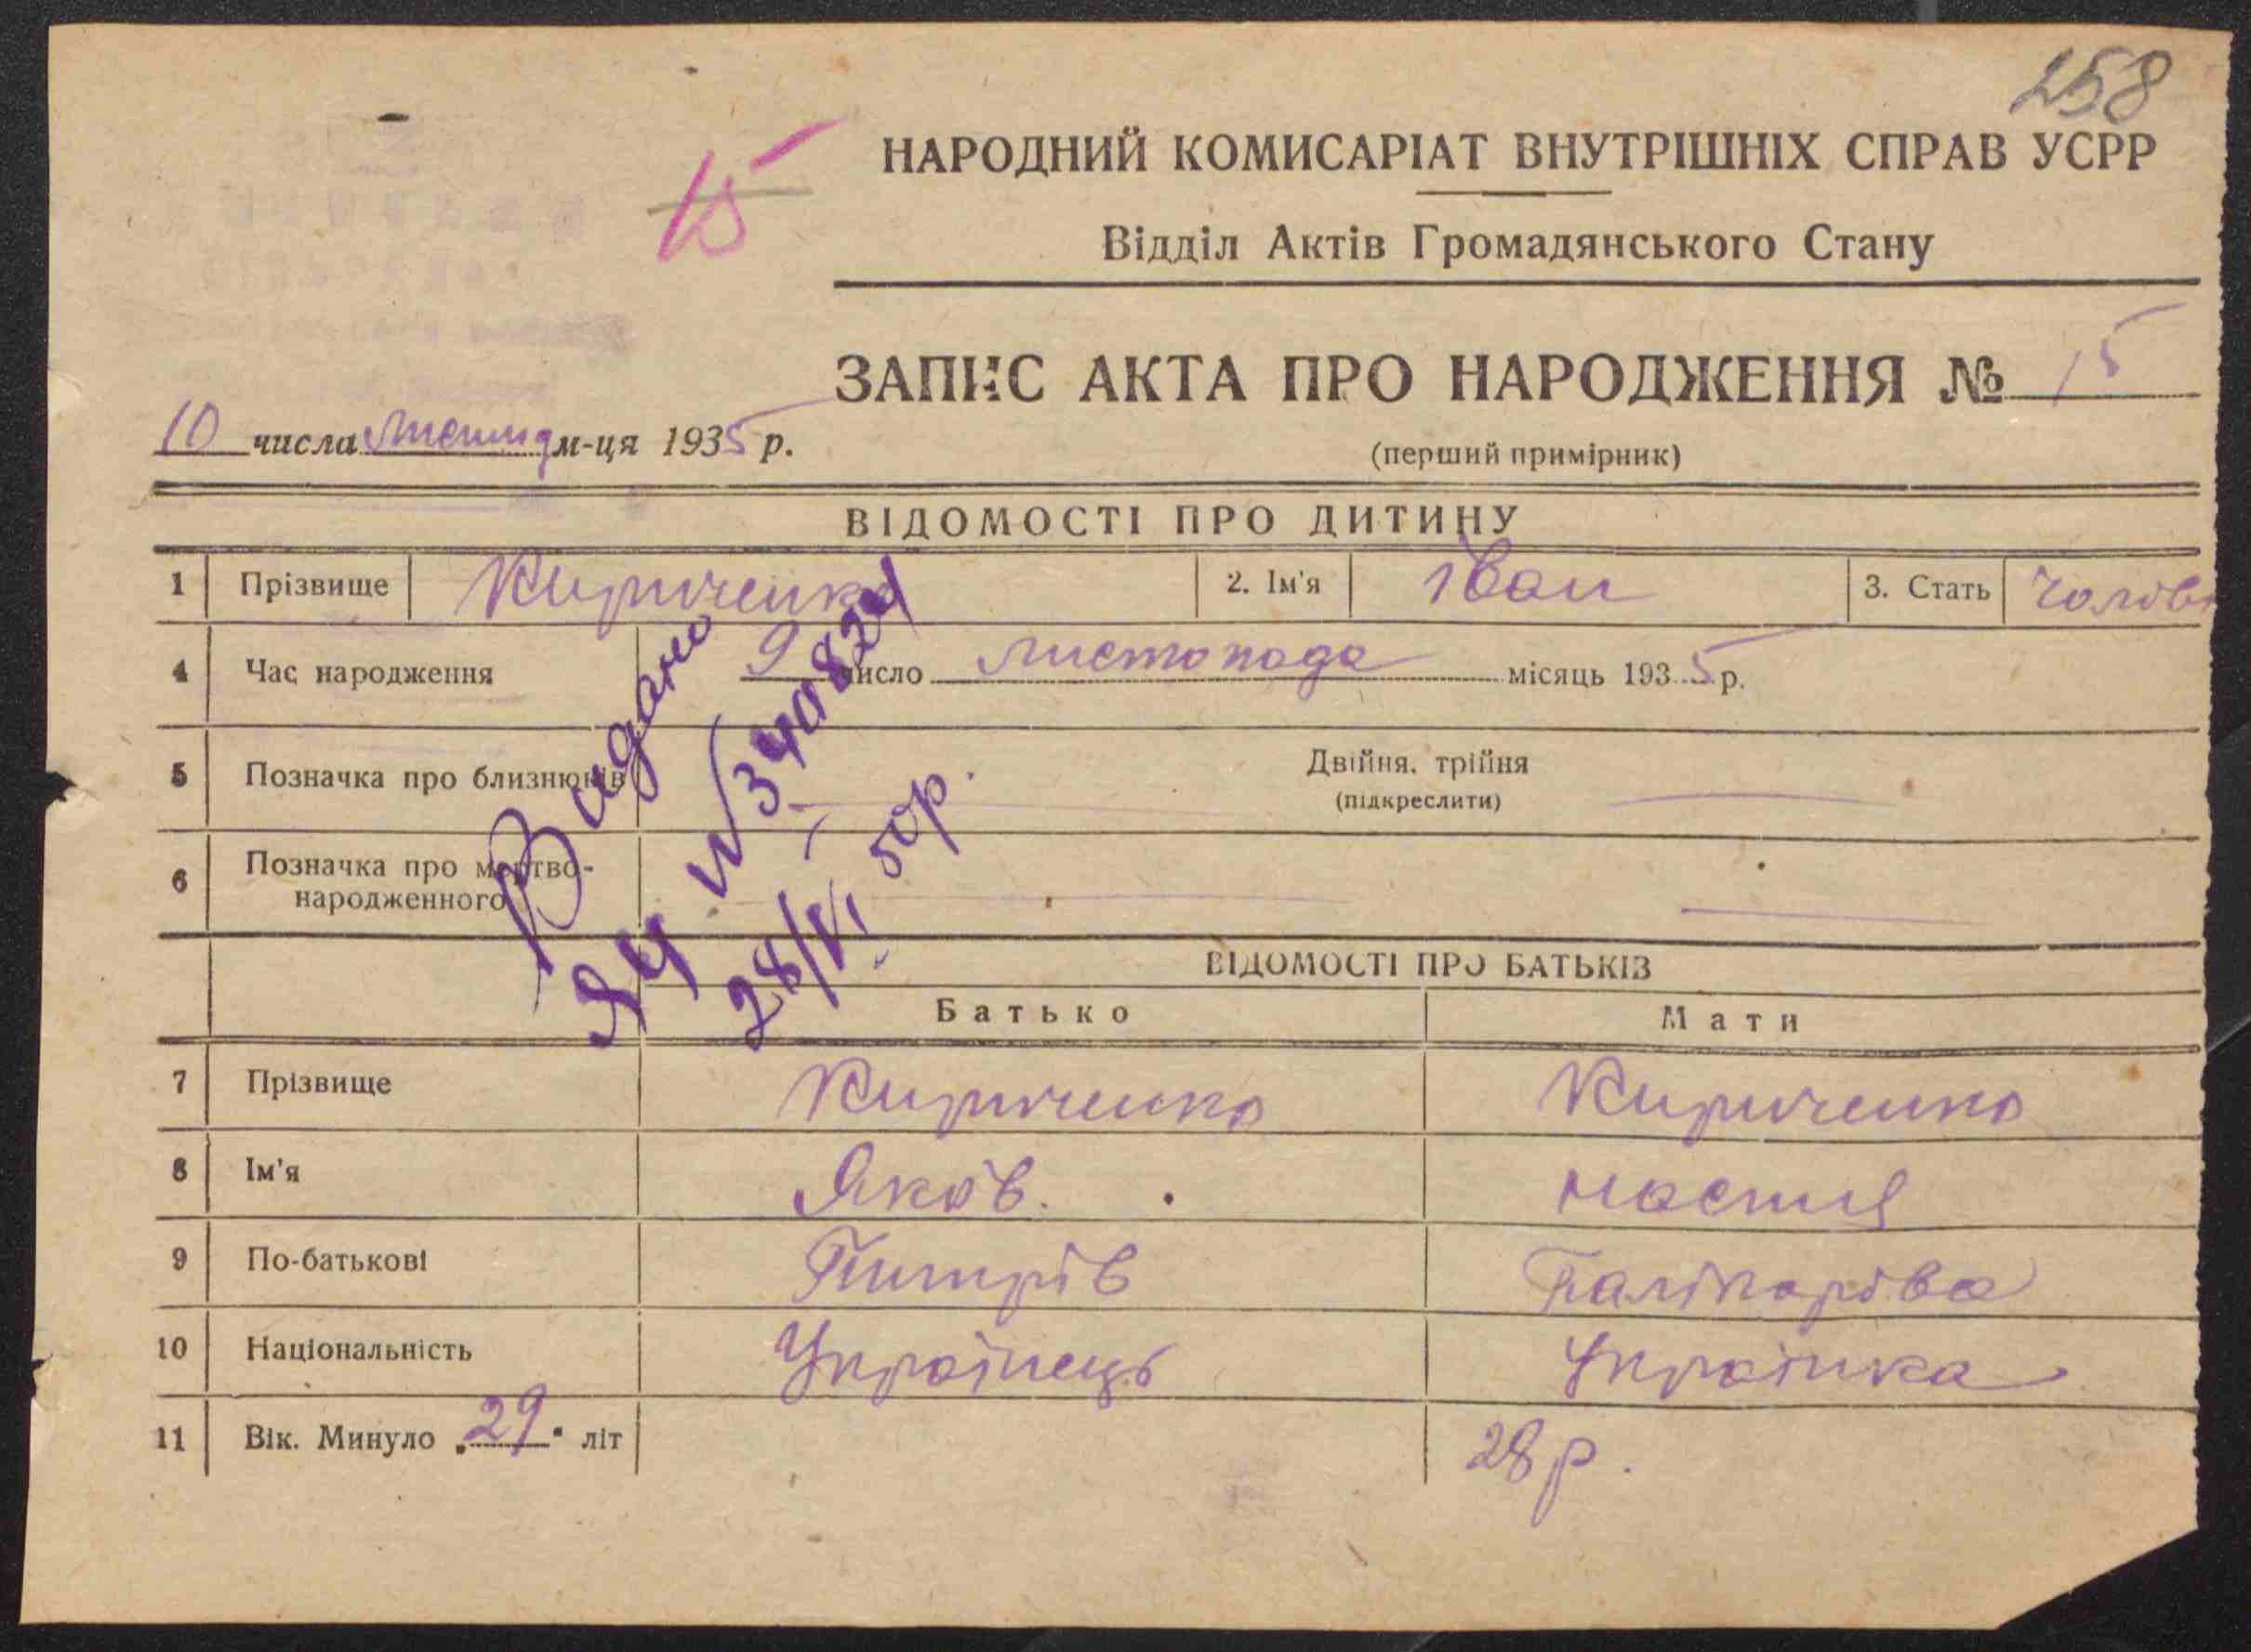 258
15
НАРОДНИЙ КОМИСАРІАТ ВНУТРІШНІХ СПРАВ УСРР
Відділ Актів Громадянського Стану
ЗАПИС АКТА ПРО НАРОДЖЕННЯ № 15
10 числа м-ця 1935 р.
(перший примірник)
ВІДОМОСТІ ПРО ДИТИНУ
1 Прізвище Кириченко 2. Ім'я Іван 3. Стать Чолові
4 Час народження 9 число листопада місяць 1935 р.
5 Позначка про близнюків Двійня, трійня
(підкреслити)
6 Позначка про мертво-
народженного
Видано
ЯЧ № 340824
28/VI 50р.
ВІДОМОСТІ ПРО БАТЬКІВ
Батько Мати
7 Прізвище Кириченко Кириченко
8 Ім'я Яків. Настя
9 По-батькові Палікарова
10 Національність Українець Українка
11 Вік. Минуло 29 літ 28 р.